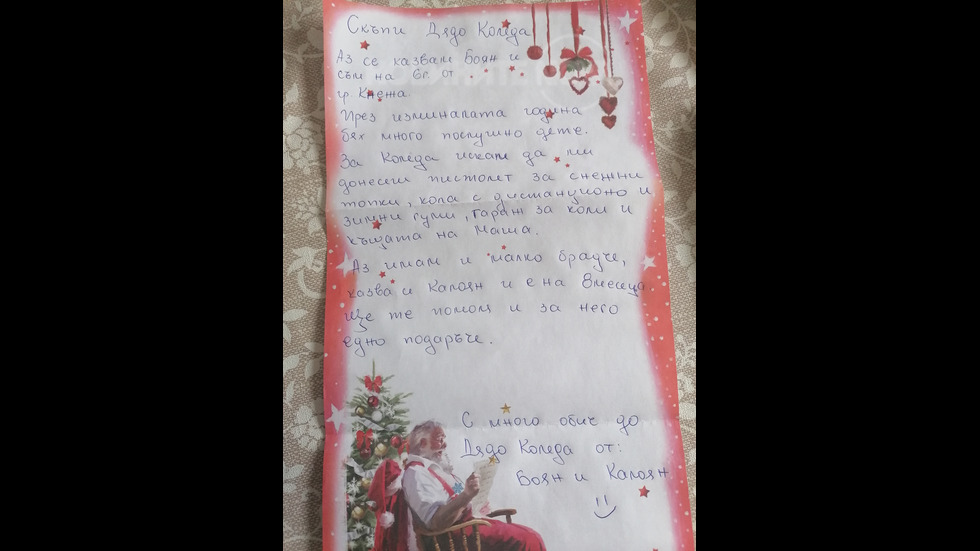 Скъпи Дядо Коледа
Аз се казвам Боян и
съм на 6г. от
гр. Кнежа.
През изминалата година
бях много послушно дете.
За Коледа искам да ми
донесеш пистолет за снежни
топки, кола с дистанционо и
зимни гуми, гараж за коли и
къщата на Маша.
Аз имам и малко братче,
казва и Калоян и е на 8месеца.
Ще те помоля и за него
едно подаръче.
С много обич до
Дядо Коледа от:
Боян и Калоян